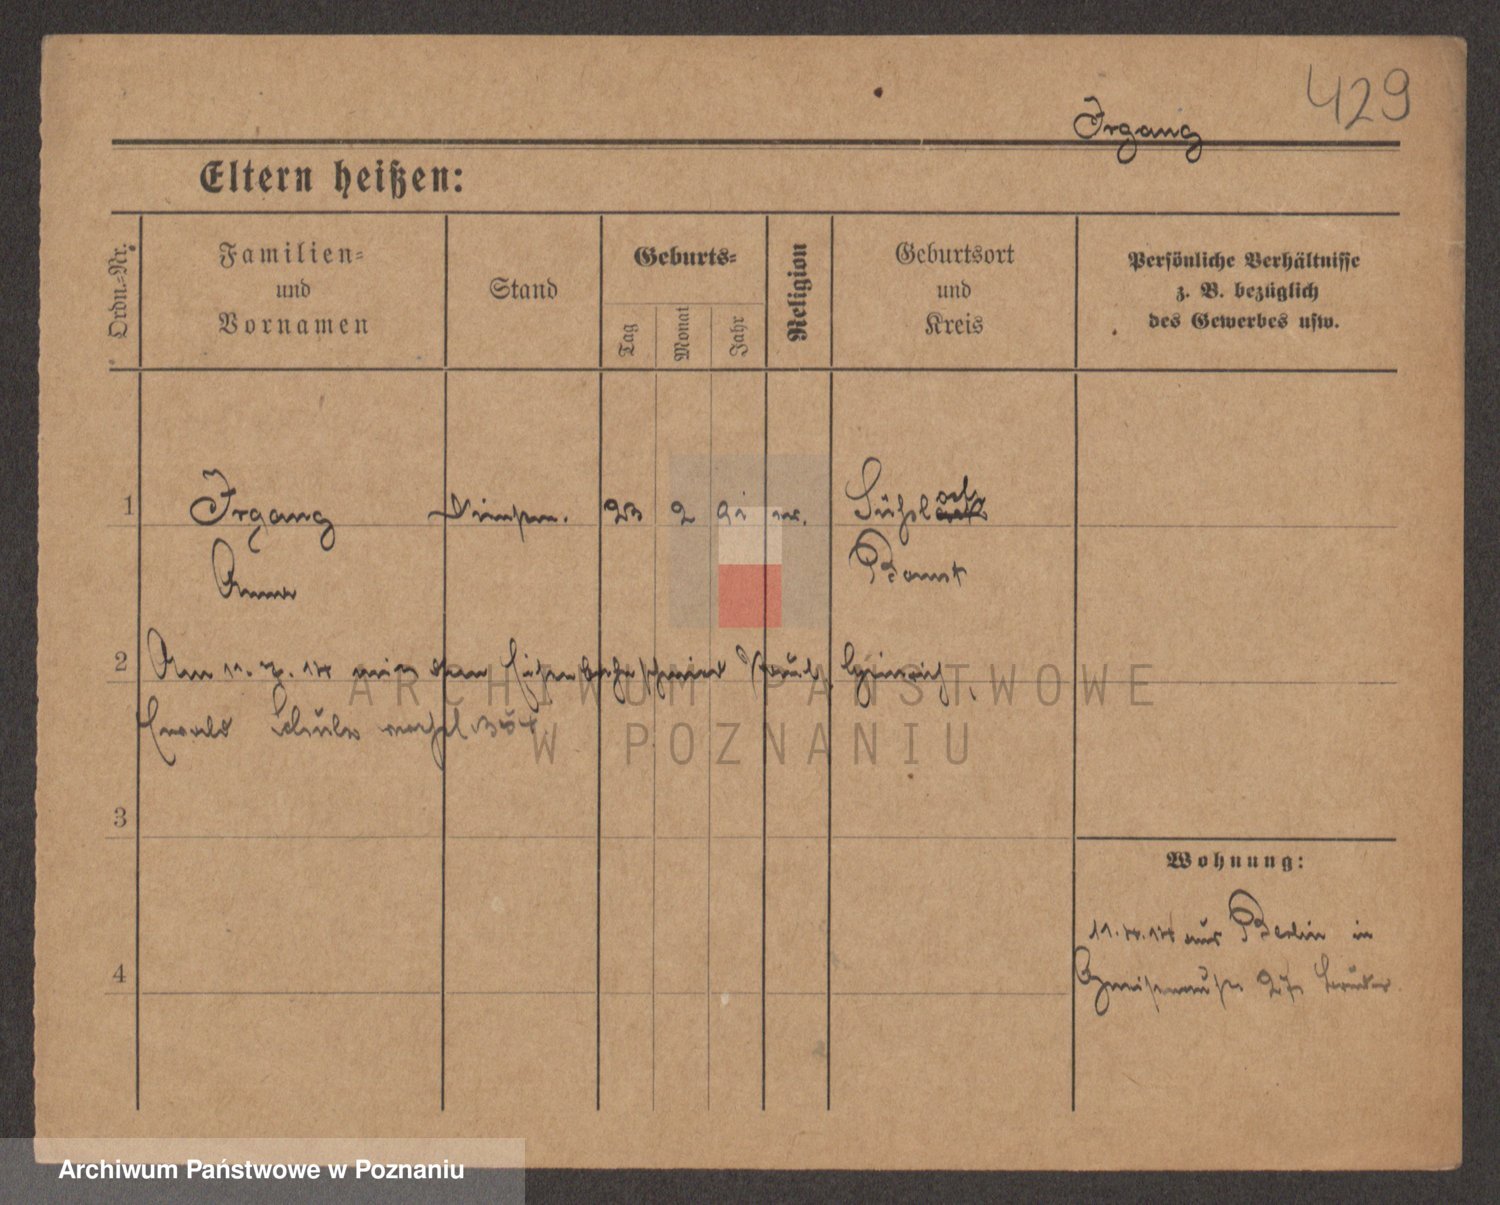 429
Irgang
Eltern heißen:
Ordn.-Nr.
Familien-
und
Vornamen
Stand
Geburts-
Tag
Monat
Jahr
Religion
Geburtsort
und
Kreis
Persönliche Verhältnisse
z. B. bezüglich
des Gewerbes usw.
1
Irgang
23 2 91
Bomst
Anna
2
Am 11. 7. 14 mit dem Paul Heinrich
Ewald Schulz
3
Wohnung:
11. 4. 14 aus Berlin in
4
27
ARCHIWUM PAŃSTWOWE
W POZNANIU
Archiwum Państwowe w Poznaniu